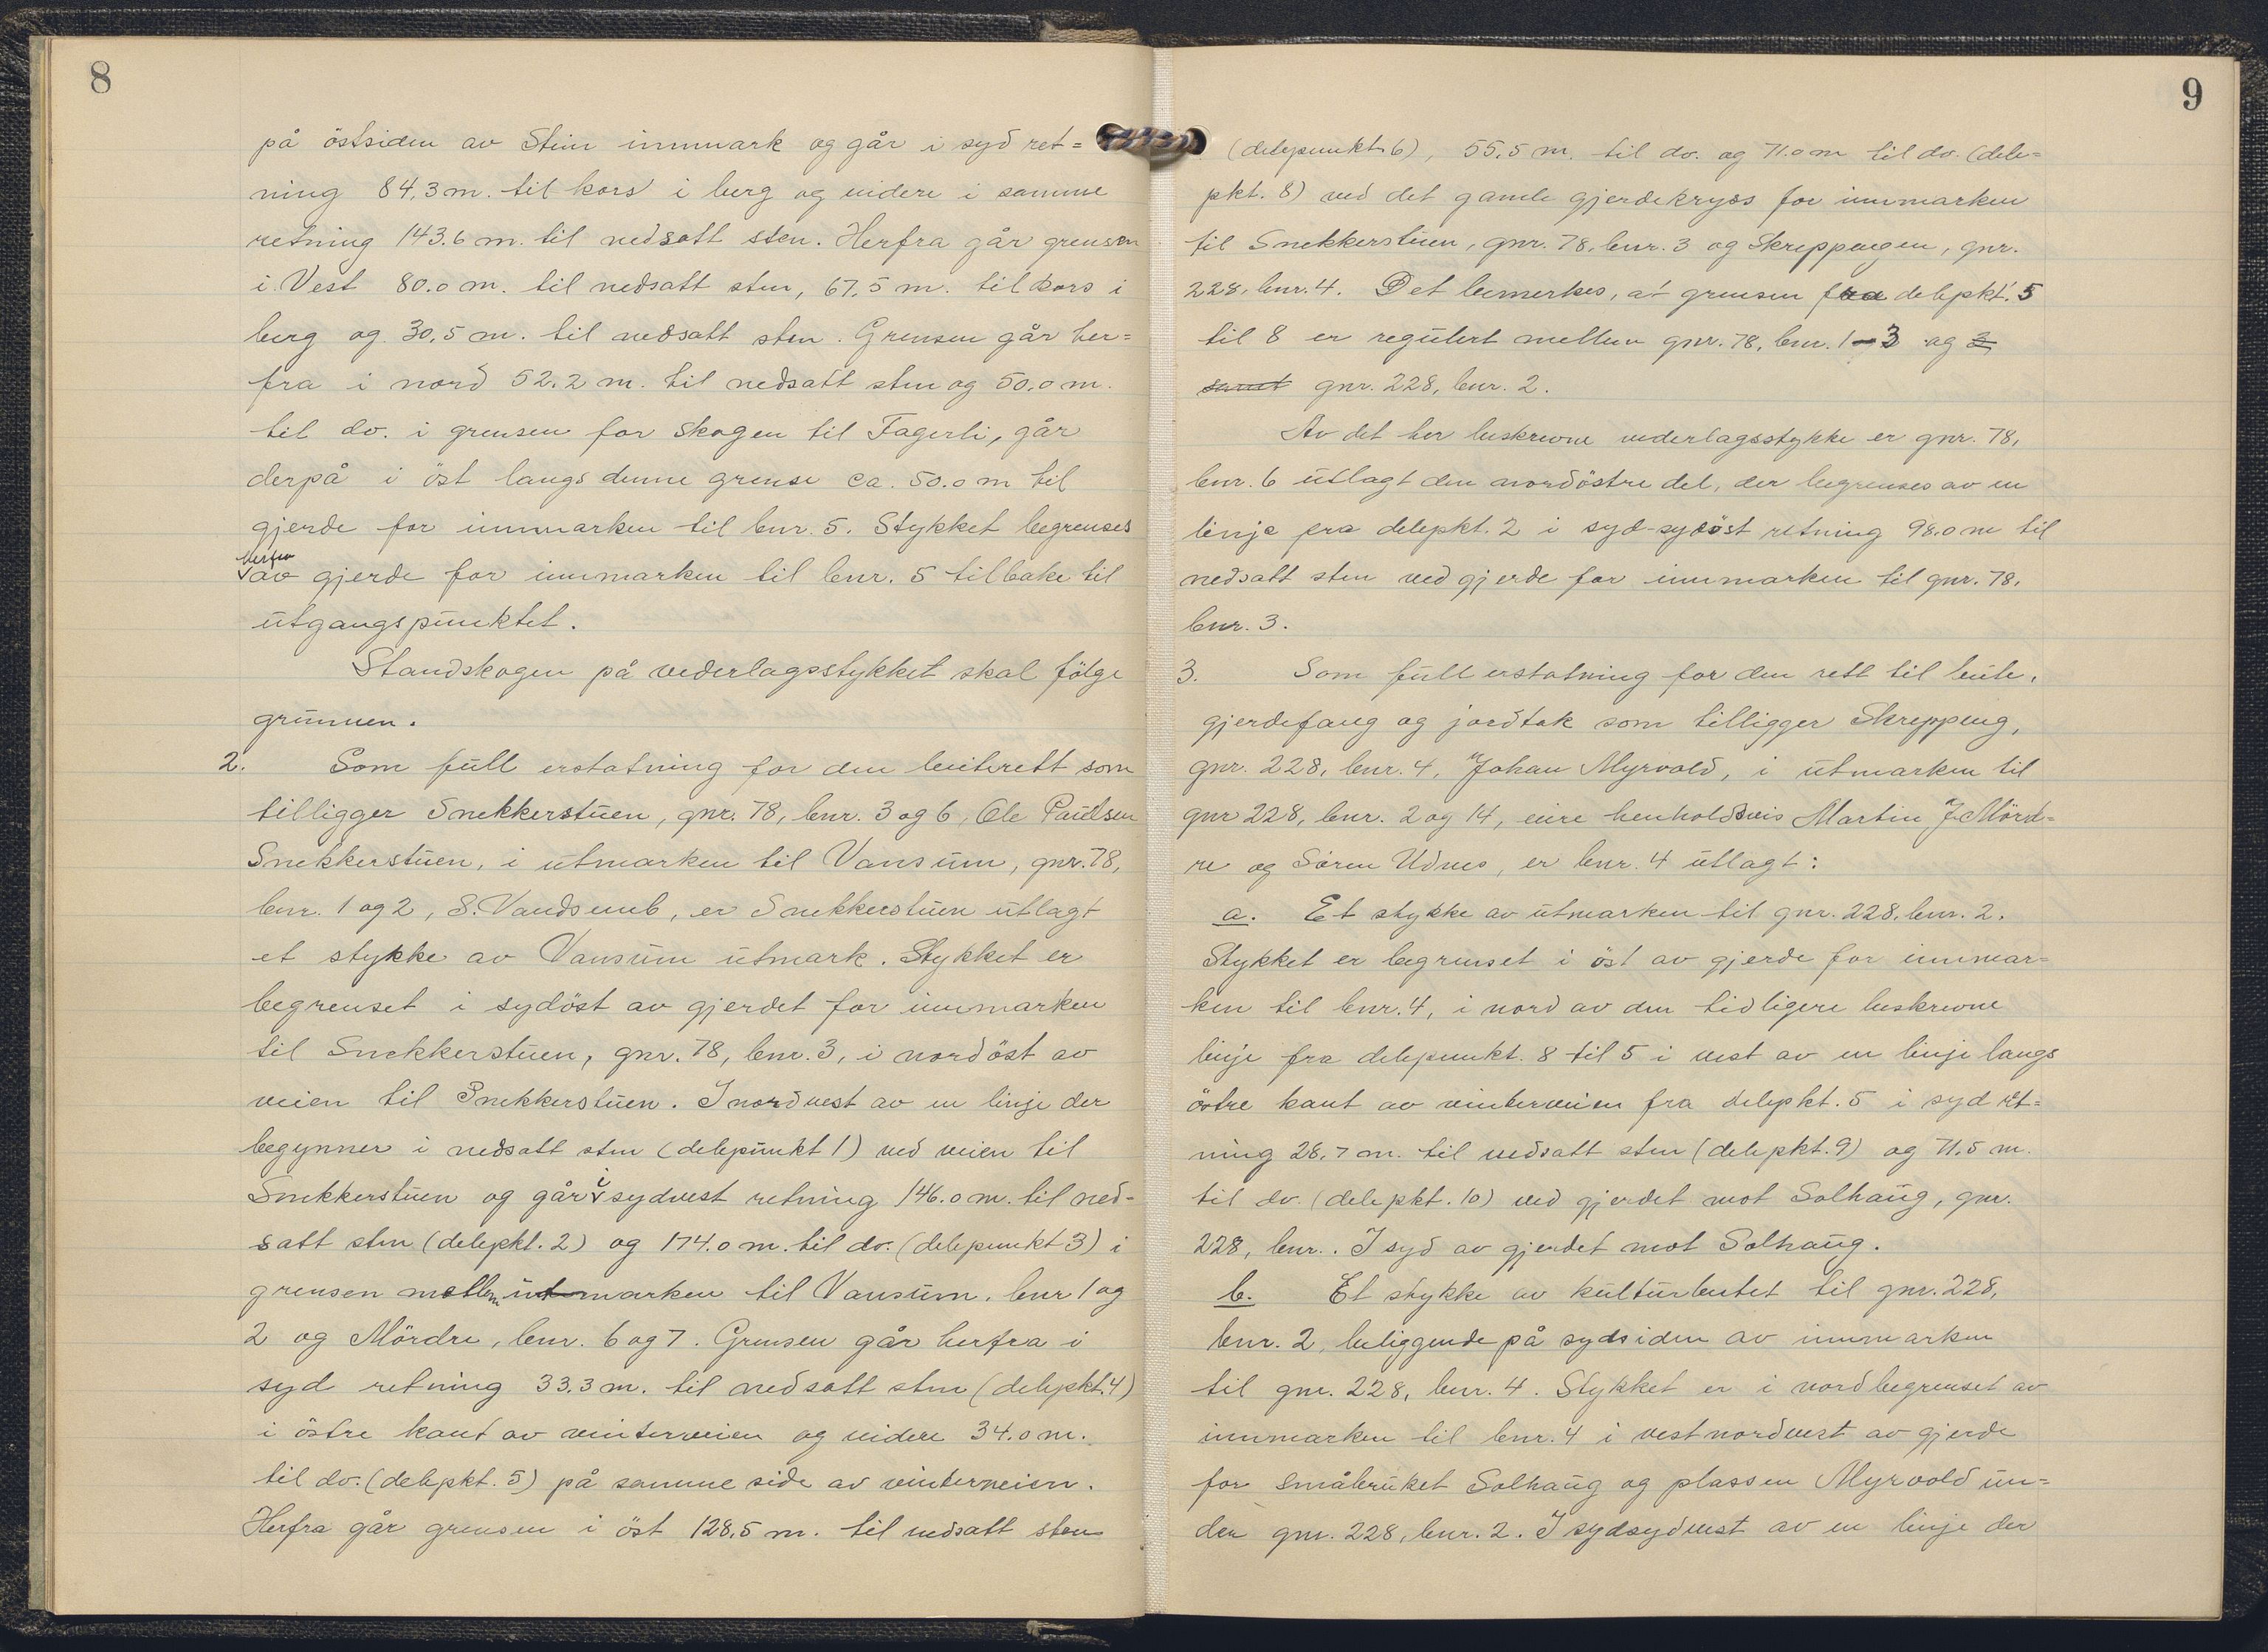 8
på östsiden av Stein innmark og går i syd ret=
ning 84,3 m. til kors i berg og videre i samme
retning 143.6 m. til nedsatt sten. Herfra går grensen
i Vest 80.0 m. til nedsatt sten, 67,5 m. til kors i
berg og 30,5 m. til nedsatt sten. Grensen går her=
fra i nord 52.2 m. til nedsatt sten og 50.0 m.
til do. i grensen for skogen til Fagerli, går
derpå i öst langs denne grense ca. 50.0 m til
gjerde for innmarken til bnr. 5. Stykket begrenses
herfra
av gjerde for innmarken til bnr. 5 tilbake til
utgangspunktet.
Standskogen på vederlagsstykket skal fölge
grunnen.
2. Som full erstatning for den beiterett som
tilligger Snekkerstuen, gnr. 78, bnr. 3 og 6, Ole Paulsen
Snekkerstuen, i utmarken til Vansum, gnr. 78,
bnr. 1 og 2, S. Vandsemb, er Snekkerstuen utlagt
et stykke av Vansum utmark. Stykket er
begrenset i sydöst av gjerdet for innmarken
til Snekkerstuen, gnr. 78, bnr. 3, i nordöst av
veien til Snekkerstuen. I nordvest av en linje der
begynner i nedsatt sten (delepunkt 1) ved veien til
Snekkerstuen og går i sydvest retning 146.0 m. til ned-
satt sten (delepkt. 2) og 174.0 m. til do. (delepunkt 3) i
grensen mellem utmarken til Vansum, bnr 1 og
2 og Mördre, bnr. 6 og 7. Grensen går herfra i
syd retning 33.3 m. til nedsatt sten (delepkt. 4)
i östre kant av vinterveien og videre 34.0 m.
til do. (delepkt. 5) på samme side av vinterveien.
Herfra går grensen i öst 128,5 m. til nedsatt sten
9
(delepunkt 6), 55.5 m. til do. og 71.0 m til do. (dele=
pkt. 8) ved det gamle gjerdekryss for innmarken
til Snekkerstuen, gnr. 78, bnr. 3 og Skreppengen, gnr.
228, bnr. 4. Det bemerkes, at grensen fra delepkt. 5
til 8 er regulert mellem gnr. 78, bnr. 1-3 og 3
samt gnr. 228, bnr. 2.
Av det her beskrevne vederlagsstykke er gnr. 78,
bnr. 6 utlagt den nordöstre del, der begrenses av en
linje fra delepkt. 2 i syd-sydöst retning 98.0 m til
nedsatt sten ved gjerde for innmarken til gnr. 78,
bnr. 3.
3. Som full erstatning for den rett til beite,
gjerdefang og jordtak som tilligger Skreppeng,
gnr. 228, bnr. 4, Johan Myrvold, i utmarken til
gnr 228, bnr. 2 og 14, eiere henholdsvis Martin J. Mörd=
re og Sören Udnes, er bnr. 4 utlagt:
a. Et stykke av utmarken til gnr. 228. bnr. 2.
Stykket er begrenset i öst av gjerde for innmar=
ken til bnr. 4, i nord av den tidligere beskrevne
linje fra delepunkt. 8 til 5 i vest av en linje langs
östre kant av vinterveien fra delepkt. 5 i syd ret=
ning 28,7 m. til nedsatt sten (delepkt. 9) og 71,5 m.
til do. (delepkt. 10) ved gjerdet mot Solhaug, gnr.
228, bnr. . I syd av gjerdet mot Solhaug.
b. Et stykke av kulturbeitet til gnr. 228,
bnr. 2, beliggende på sydsiden av innmarken
til gnr. 228, bnr. 4. Stykket er i nord begrenset av
innmarken til bnr. 4 i vestnordvest av gjerde
for småbruket Solhaug og plassen Myrvold un=
der gnr. 228, bnr. 2. I sydsydvest av en linje der